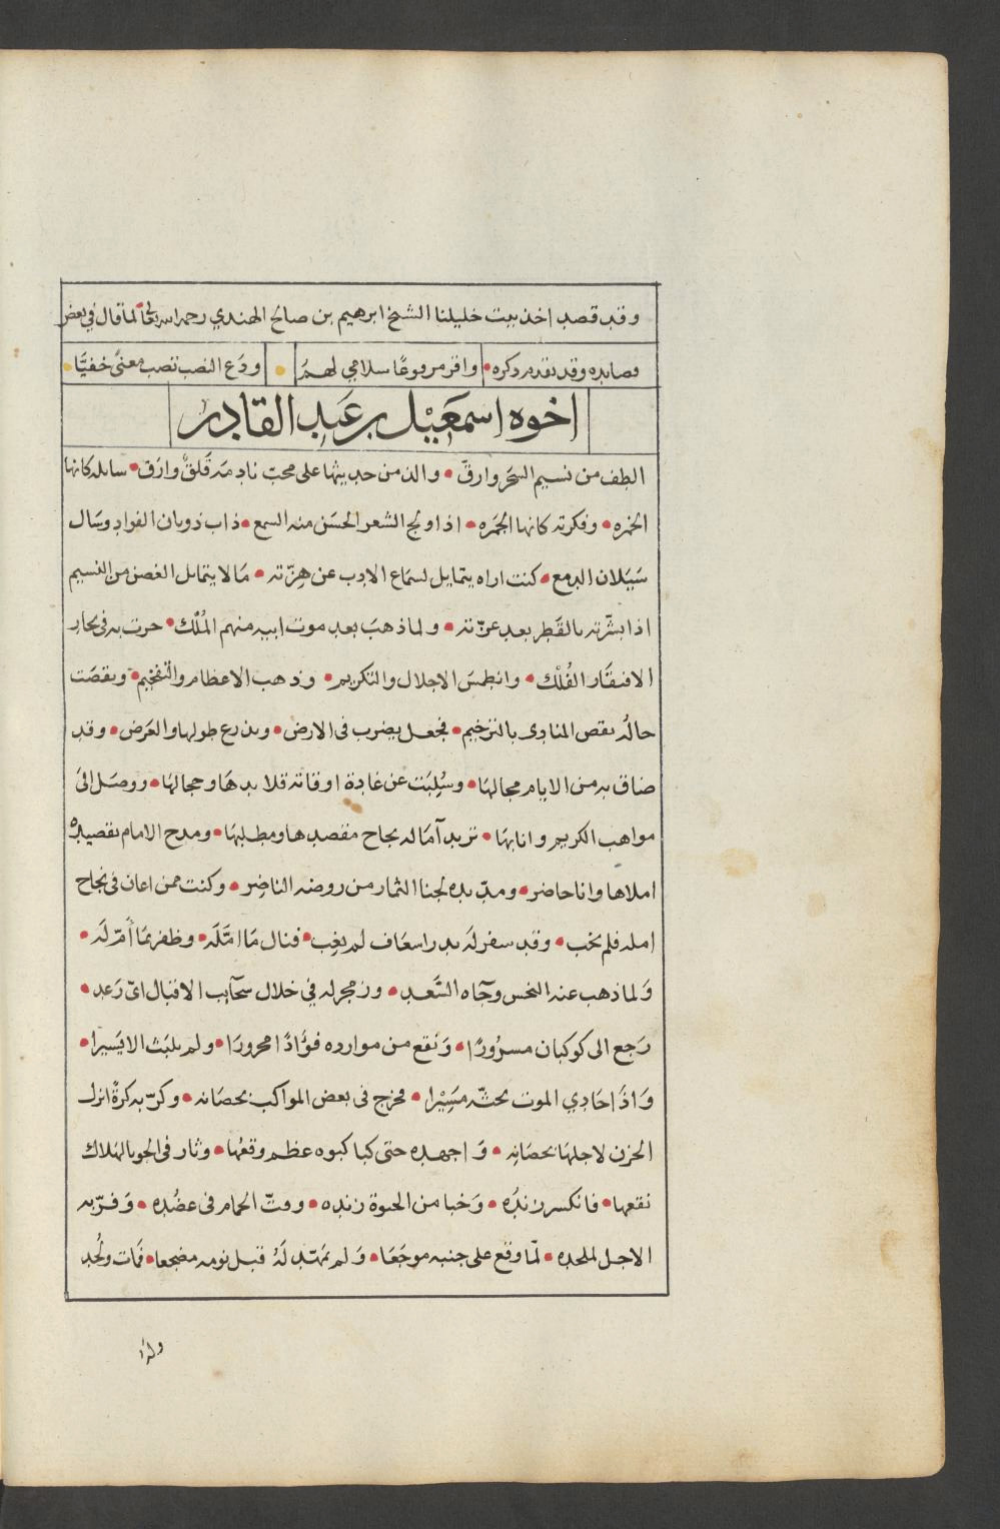 وقد قصد اخذ بيت خليلنا الشيخ ابرهيم بن صالح الهندي رحمه الله تعالى لما قال في بعض
قصايده وقد تقدم ذكره • واقر مرفوعًا سلامي لهم • ودَع النصب نصب معنىً خفيًّا •
اخوه اسمعيل بن عبد القادر
الطف من نسيم السَّحَر وارقّ • والذ من حديثها على محبّ نادمته قَلقٌ وارَق • سائله كانها
الخمره • وفكرته كانها الجمَره • اذا ولج الشعر الحسَن منه السمع • ذاب ذوبان الفواد وسَال
سَيَلان الدمع • كنت اراه يتمايل لسماع الادب عن هِزّته • مَا لا يتمايل الغصن من النسيم
اذا بشّرته بالقَطر بعد عزّته • ولما ذهبَ بعد موت ابيه منهم المُلْك • جرت به في بحار
الافتقار الفُلْك • وانطمسَ الاجلال والتكريم • وذهب الاعظام والتفخيم • ونقصَت
حالُه نقص المنادى بالترخيم • فجعل يضرب في الارض • ويذرع طولها والعَرض • وقد
ضاق به من الايام مجالهَا • وسُلِبَت عن غادة اوقاته قلايدهَا وحجالهَا • ووصَل الىَ
مواهب الكريم وانابهَا • تريد آمَاله نجاح مقصدها ومطلبهَا • ومدح الامام بقصيدة
املاها وانا حاضر • ومدّ يده لجنا الثمار من روضه الناضِر • وكنت ممن اعان في نجاح
امله فلم يخب • وقد سفر لهَ بدر اسعَاف لم يغِب • فنال مَا امَّلَه • وظفر بمَا أمّ لَه •
وَلما ذهب عنه النحس وجَاه السَّعد • وزمجر له في خلال سحَايب الاقبال ايّ رَعد •
رَجع الى كوكبان مسرُورًا • وَنقع من موارده فؤَادًا محرورَا • ولم يلبَث الا يَسيرا •
وَاذَا حَادِي الموت يحثّه مَسِيْرا • فخرج في بعض المواكب بحصَانه • وكرّ به كرةً انزل
الحزن لاجلهَا بحصَانِه • وَاجهده حتى كبا كبوه عظم وقعُها • وثار في الجو بالهَلاك
نقعها • فانكسر زندُه • وَخبا من الحيوة زنده • وفتّ الحمام في عضُده • وَفرّ به
الاجل لملحده • لمّا وقع على جنبه موجَعَا • وَلم يمَهّد لَهُ قبل نومه مضجعا • فمَات ولُحد